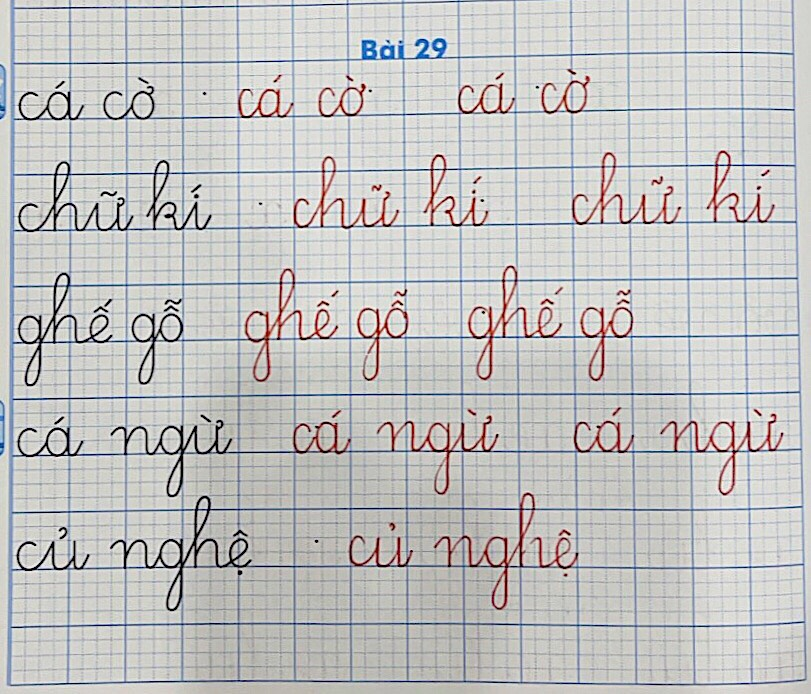 Bài 29
cá cờ cá cờ cá cờ
chữ kí chữ kí chữ kí
ghế gỗ ghế gỗ ghế gỗ
cá ngừ cá ngừ cá ngừ
củ nghệ củ nghệ